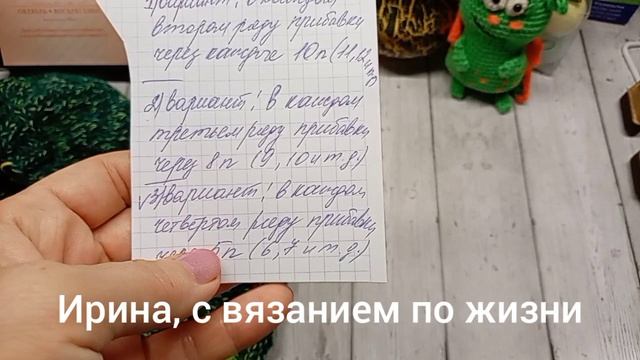 1) вариант! в каждом
втором ряду прибавки
через каждые 10п (11, 12 и т.д)
2) вариант! в каждом
третьем ряду прибавки
через 8п (9, 10 и т.д.)
3) вариант! в каждом
четвертом ряду прибавки
5п (6, 7 и т.д.)
Ирина, с вязанием по жизни